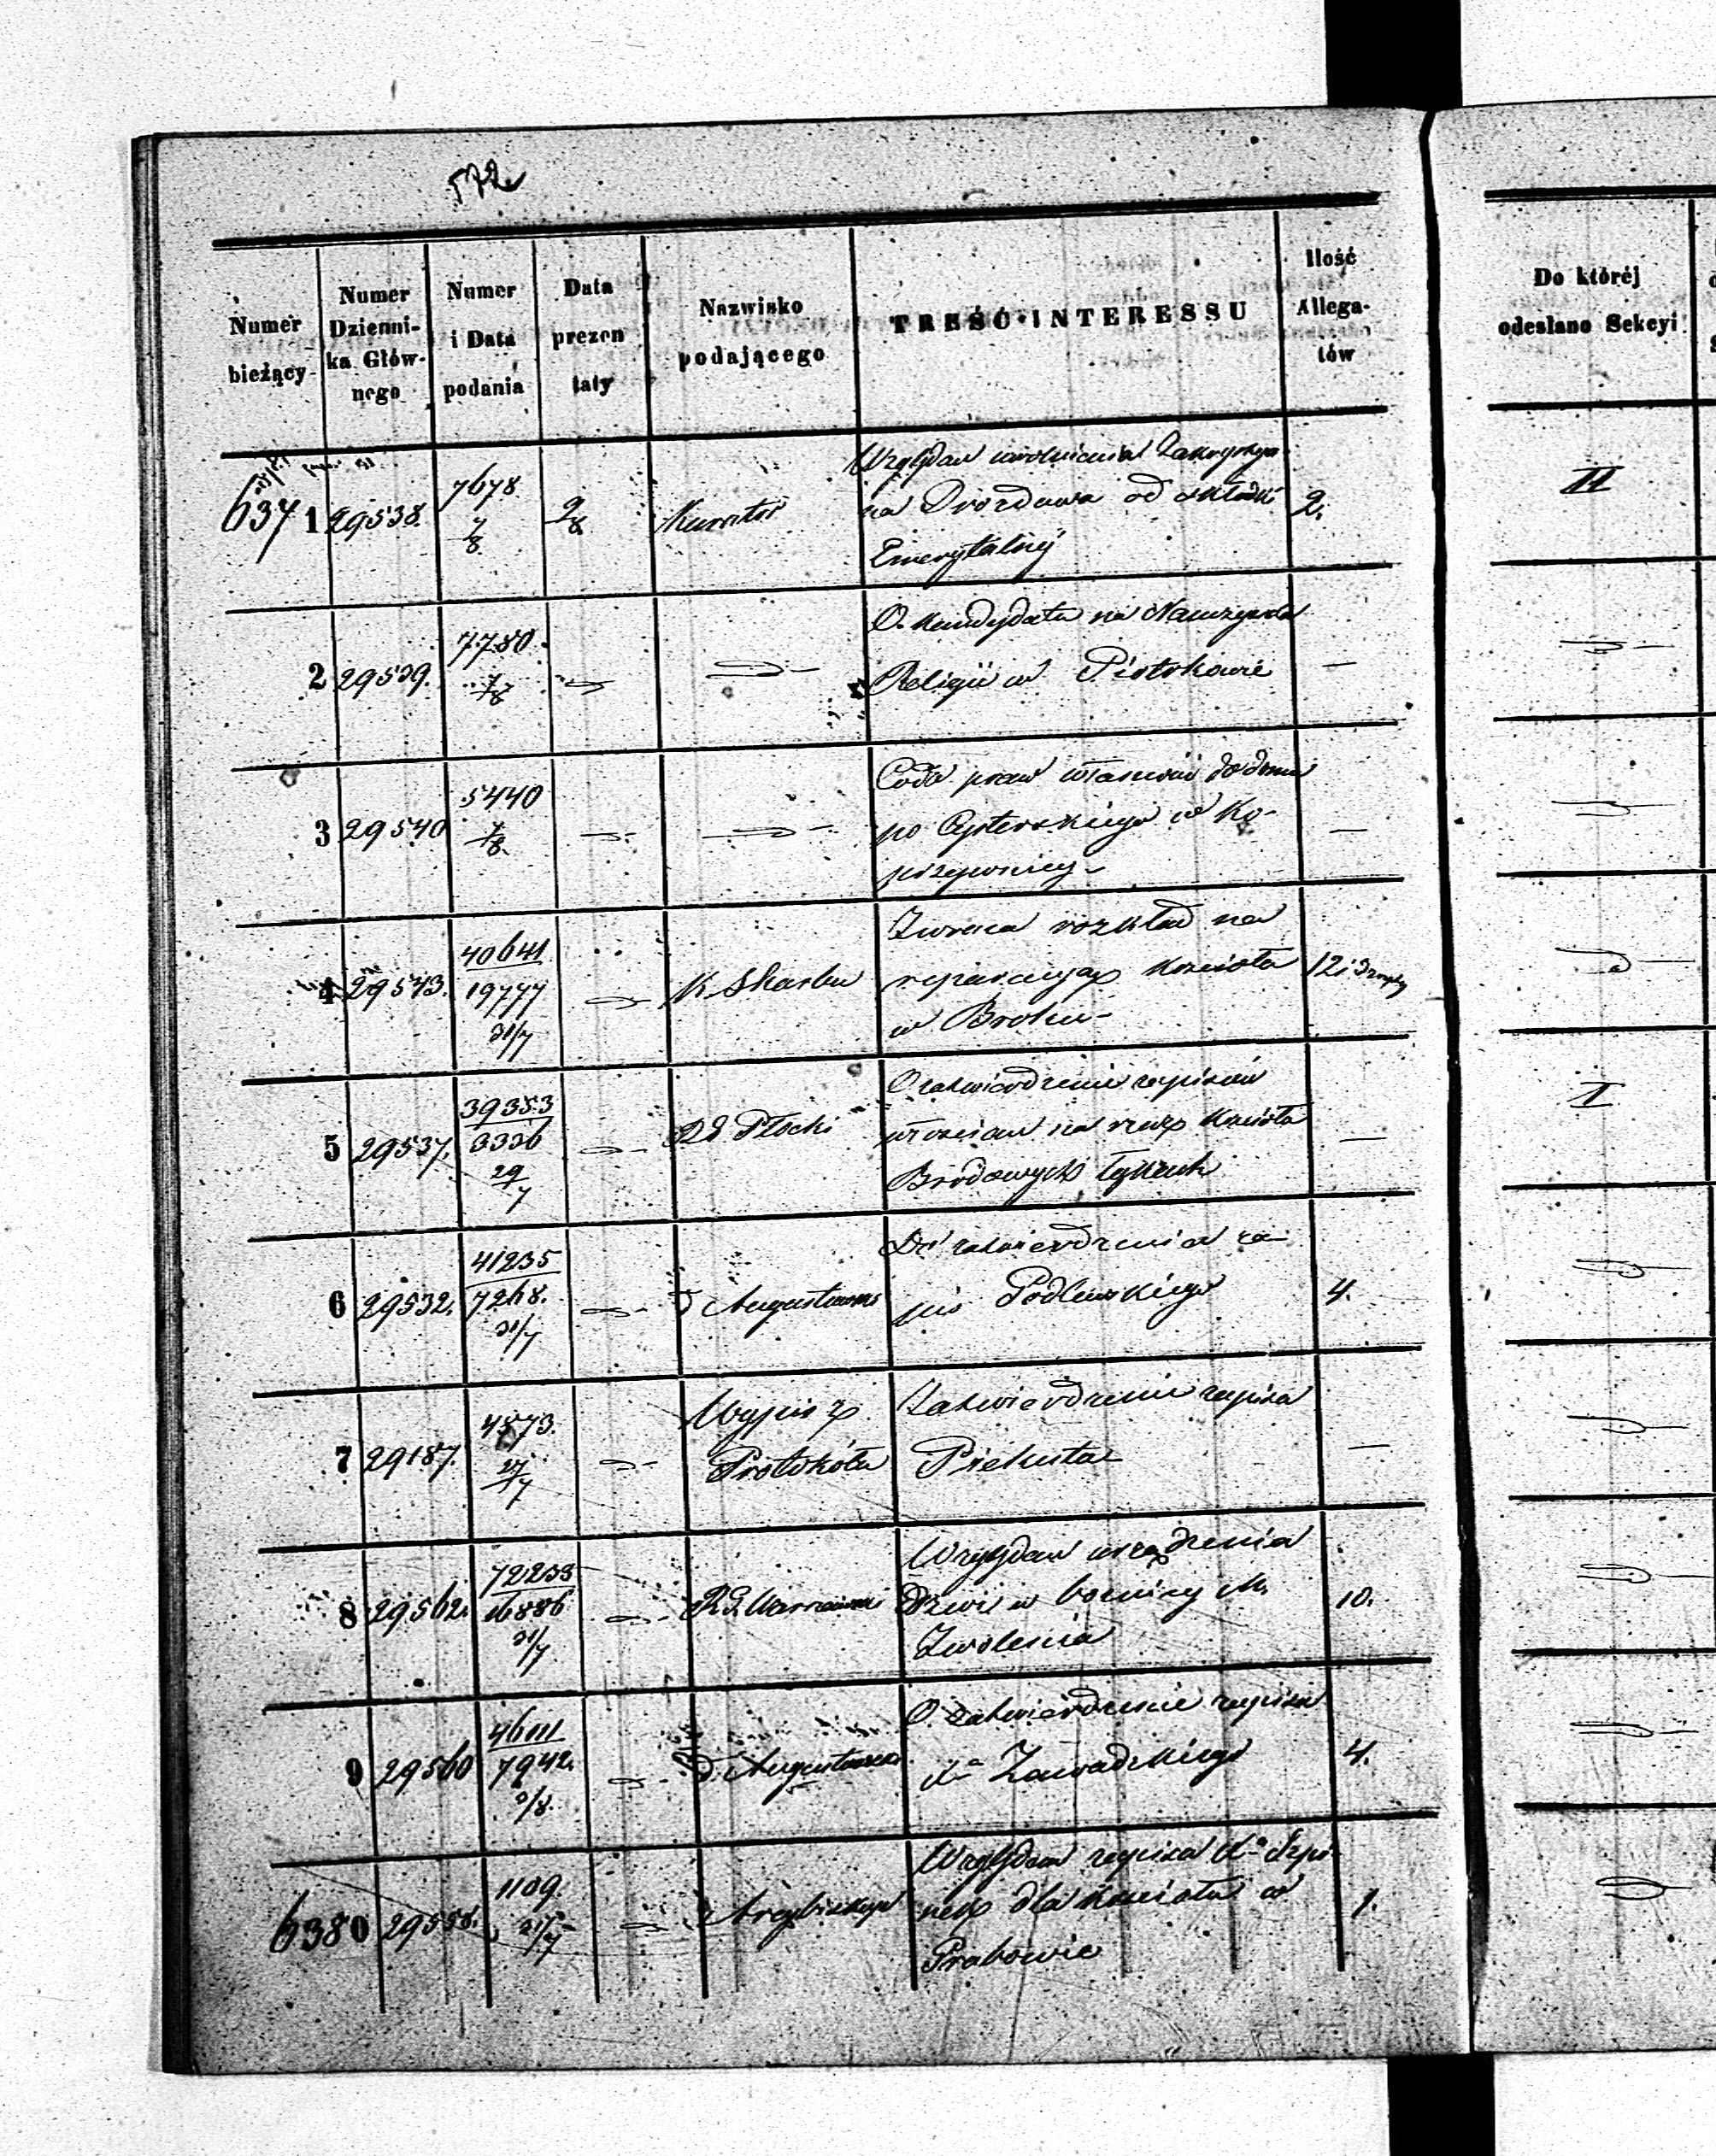 572
Numer bieżący
Numer Dzienni-ka Głów-nego
Numer i Data podania
Data prezen taty
Nazwisko podającego
TREŚĆ INTERESSU
Ilość Allega-tów
Do któréj odesłano Sekcyi
6371 29538. 7678 7/8 9/8 Kurator
Względem uwolnienia
na od składki 2. II
Emerytalnéj
2 29539. 7780 7/8
O kandydata na Nauczyciela
Religii w Piotrkowie
3 29540 5440 7/8
Co do praw własności do domu
po Cysterskiego w Ko-
przywnicy
4 29543. 40641 19777 31/7 K. Skarbu
Zwraca rozkład na
reparacyą kościoła 12 i
w Broku
5 29537. 39353 3336 29/7 R G Płocki I
O zatwierdzenie zapisów
włościan na rzecz Kościoła
6 29532. 41235 7268. 31/7 Augustowski
Do zatwierdzenia za-
pis Podlewskiego 4.
7 29187. 4573. 27/7 Wypis z Protokółu
Zatwierdzenie zapisu
Piekuta
8 29562. 72233 16886 31/7 R.G. Warszawski
Względem urządzenia
Drzwi w bożnicy M. 10.
Zwolenia
9 29560 46111 7942. 2/8. Augustowski
O zatwierdzenie zapisu
Xa Zawadzkiego 4.
6380 29558. 1109. 31/7 Arcybiskup
Względem zapisu Xa
dla kościoła w 1.
Grabowie